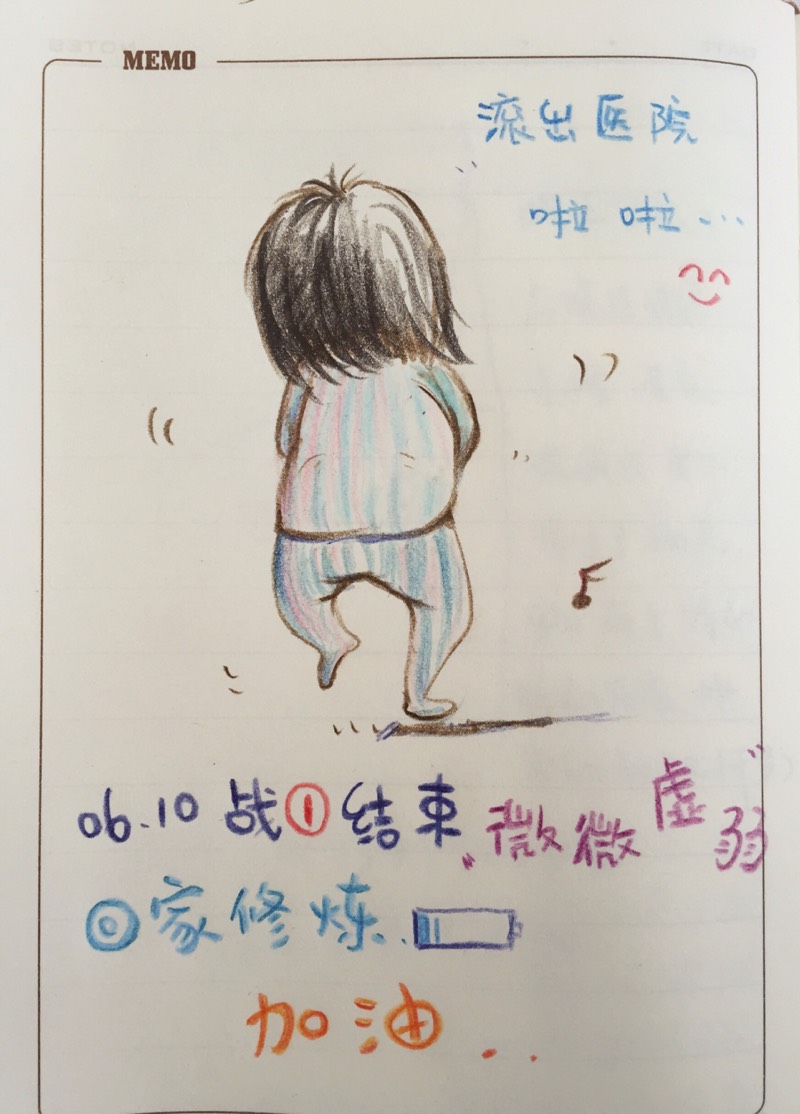 MEMO
滚出医院
啦啦...
06.10 战①结束 微微虚弱
回家修炼.
加油..